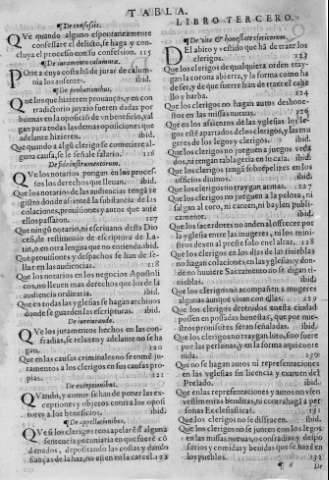 TABLA.
¶ De confessis.
QVe quando alguno espontaneamente
confessare el delicto, se haga y con-
cluya el processo con su confession. 115
¶ De iuramento calumniæ.
POr a cuya costa hã de jurar de calum-
nia los ausentes. ibid.
¶ De probationibus.
QVe los que hizieren prouança, y en con
tradictorio juyzio fueren dadas por
bonnas en la oposicion de vn beneficio, val
gan para todas las demas oposiciones que
adelante hizieren. ibid.
QVe quando algũ clerigo se cometiere al
guna causa, se le señale salario. 126
De fide instrumentorum.
QVe los notarios pongan en los proces-
sos los derechos que lleuan. ibid.
Que los notarios de las audiencias tengã re
gistro donde assienten la substancia de las
colaciones, prouisiones y autos que ante
ellos passaron. 127
Que ningũ notario, ni escriuano desta Dio
cesi, de testimonio de escriptura de La-
tin, o en otra lengua que no entienda. ibid.
Que prouisiones y despachos se hã de se-
llar en las audiencias. 218
Que los notarios en los negocios Apostoli
cos, no lleuen mas derechos que los de la
audiencia ordinaria. ibid.
Que en todas las yglesias se hagan archiuos
donde se guarden las escripturas. ibid.
De iureiurando.
QVe los juramentos hechos en las con-
fradias, se relaxen y adelante no se ha-
gan. 220
Que en las causas criminales no se tomẽ ju-
ramentos a los clerigos en causas pro-
pias. 222
De exceptionibus.
QVando, y como se han de poner las ex-
cepciones y objetos contra los oposi
tores a los beneficios. ibid.
¶ De appellationibus.
QVe si los clerigos reos apelarẽ de alguna
sentencia pecuniaria en que fuerẽ cõ
denados, depositando las costas y dando
fianças de la haz, no estẽn en la carcel. 222
LIBRO TERCERO.
¶ De vita & honestate clericorum.
DEl abito y vestido que hã de traer los
clerigos. 223
Que los clerigos de qualquiera orden tray
gan la corona abierta, y la forma como ha
de ser, y de que fuerte han de traer el cabe
llo y barba. 224
Que los clerigos no hagan autos deshone-
stos en las missas nueuas. ibid.
Que en los assientos de las yglesias los lei-
gos estẽ apartados de los clerigos, y las mu
geres de los legos y clerigos. ibid.
Que los clerigos no jueguen a juegos veda
dos, ni tengan tablageria en su casa. ibid.
Que los clerigos traigã sobrepelizes en los
officios diuinos. ibid.
Que los clerigos no traygan armas. 227
Que los clerigos no jueguen a la pelota, ni
salgan al toro, ni cacen, ni baylen publi-
camente. ibid.
Que los sacerdotes no anden al ofrecer por
la yglesia entre las mugeres, ni los mini-
stros desen al preste solo en el altar. 228
Que los clerigos en los dias de las tinieblas
no hagan colaciones en las yglesias, y don-
de no huuiere Sacramento no se digan ti-
nieblas. ibid.
Que los clerigos no acompañen a mugeres
algunas aunque viuan con ellas. 229
Que los clerigos detenidos nuestra ciudad
possen en posadas honestas, que por nue-
stros prouisores seran señaladas. ibid.
Que los clerigos no traygan luto, sino fuere
por las personas, y en la forma aqui conte
nida. ibid.
Que no se hagan autos ni representaciones
en las yglesias sin licencia y examen del
Prelado. ibid.
Que en las representaciones y autos no vsen
vestimentos benditos, ni contrahagã a per
sonas Ecclesiasticas. 231
Que los clerigos no dissuen. ibid.
Que los clerigos no se junten con los legos
en las missas nueuas, o cofradias y despo
sorios, ni en los juegos que se hazẽ en
los pueblos. 232
¶ 6 De